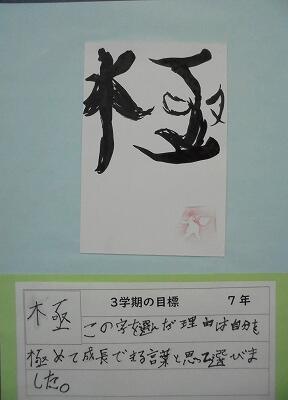 極
極
3学期の目標 7年
この字を選んだ理由は自分を
極めて成長できる言葉と思って選びま
した。